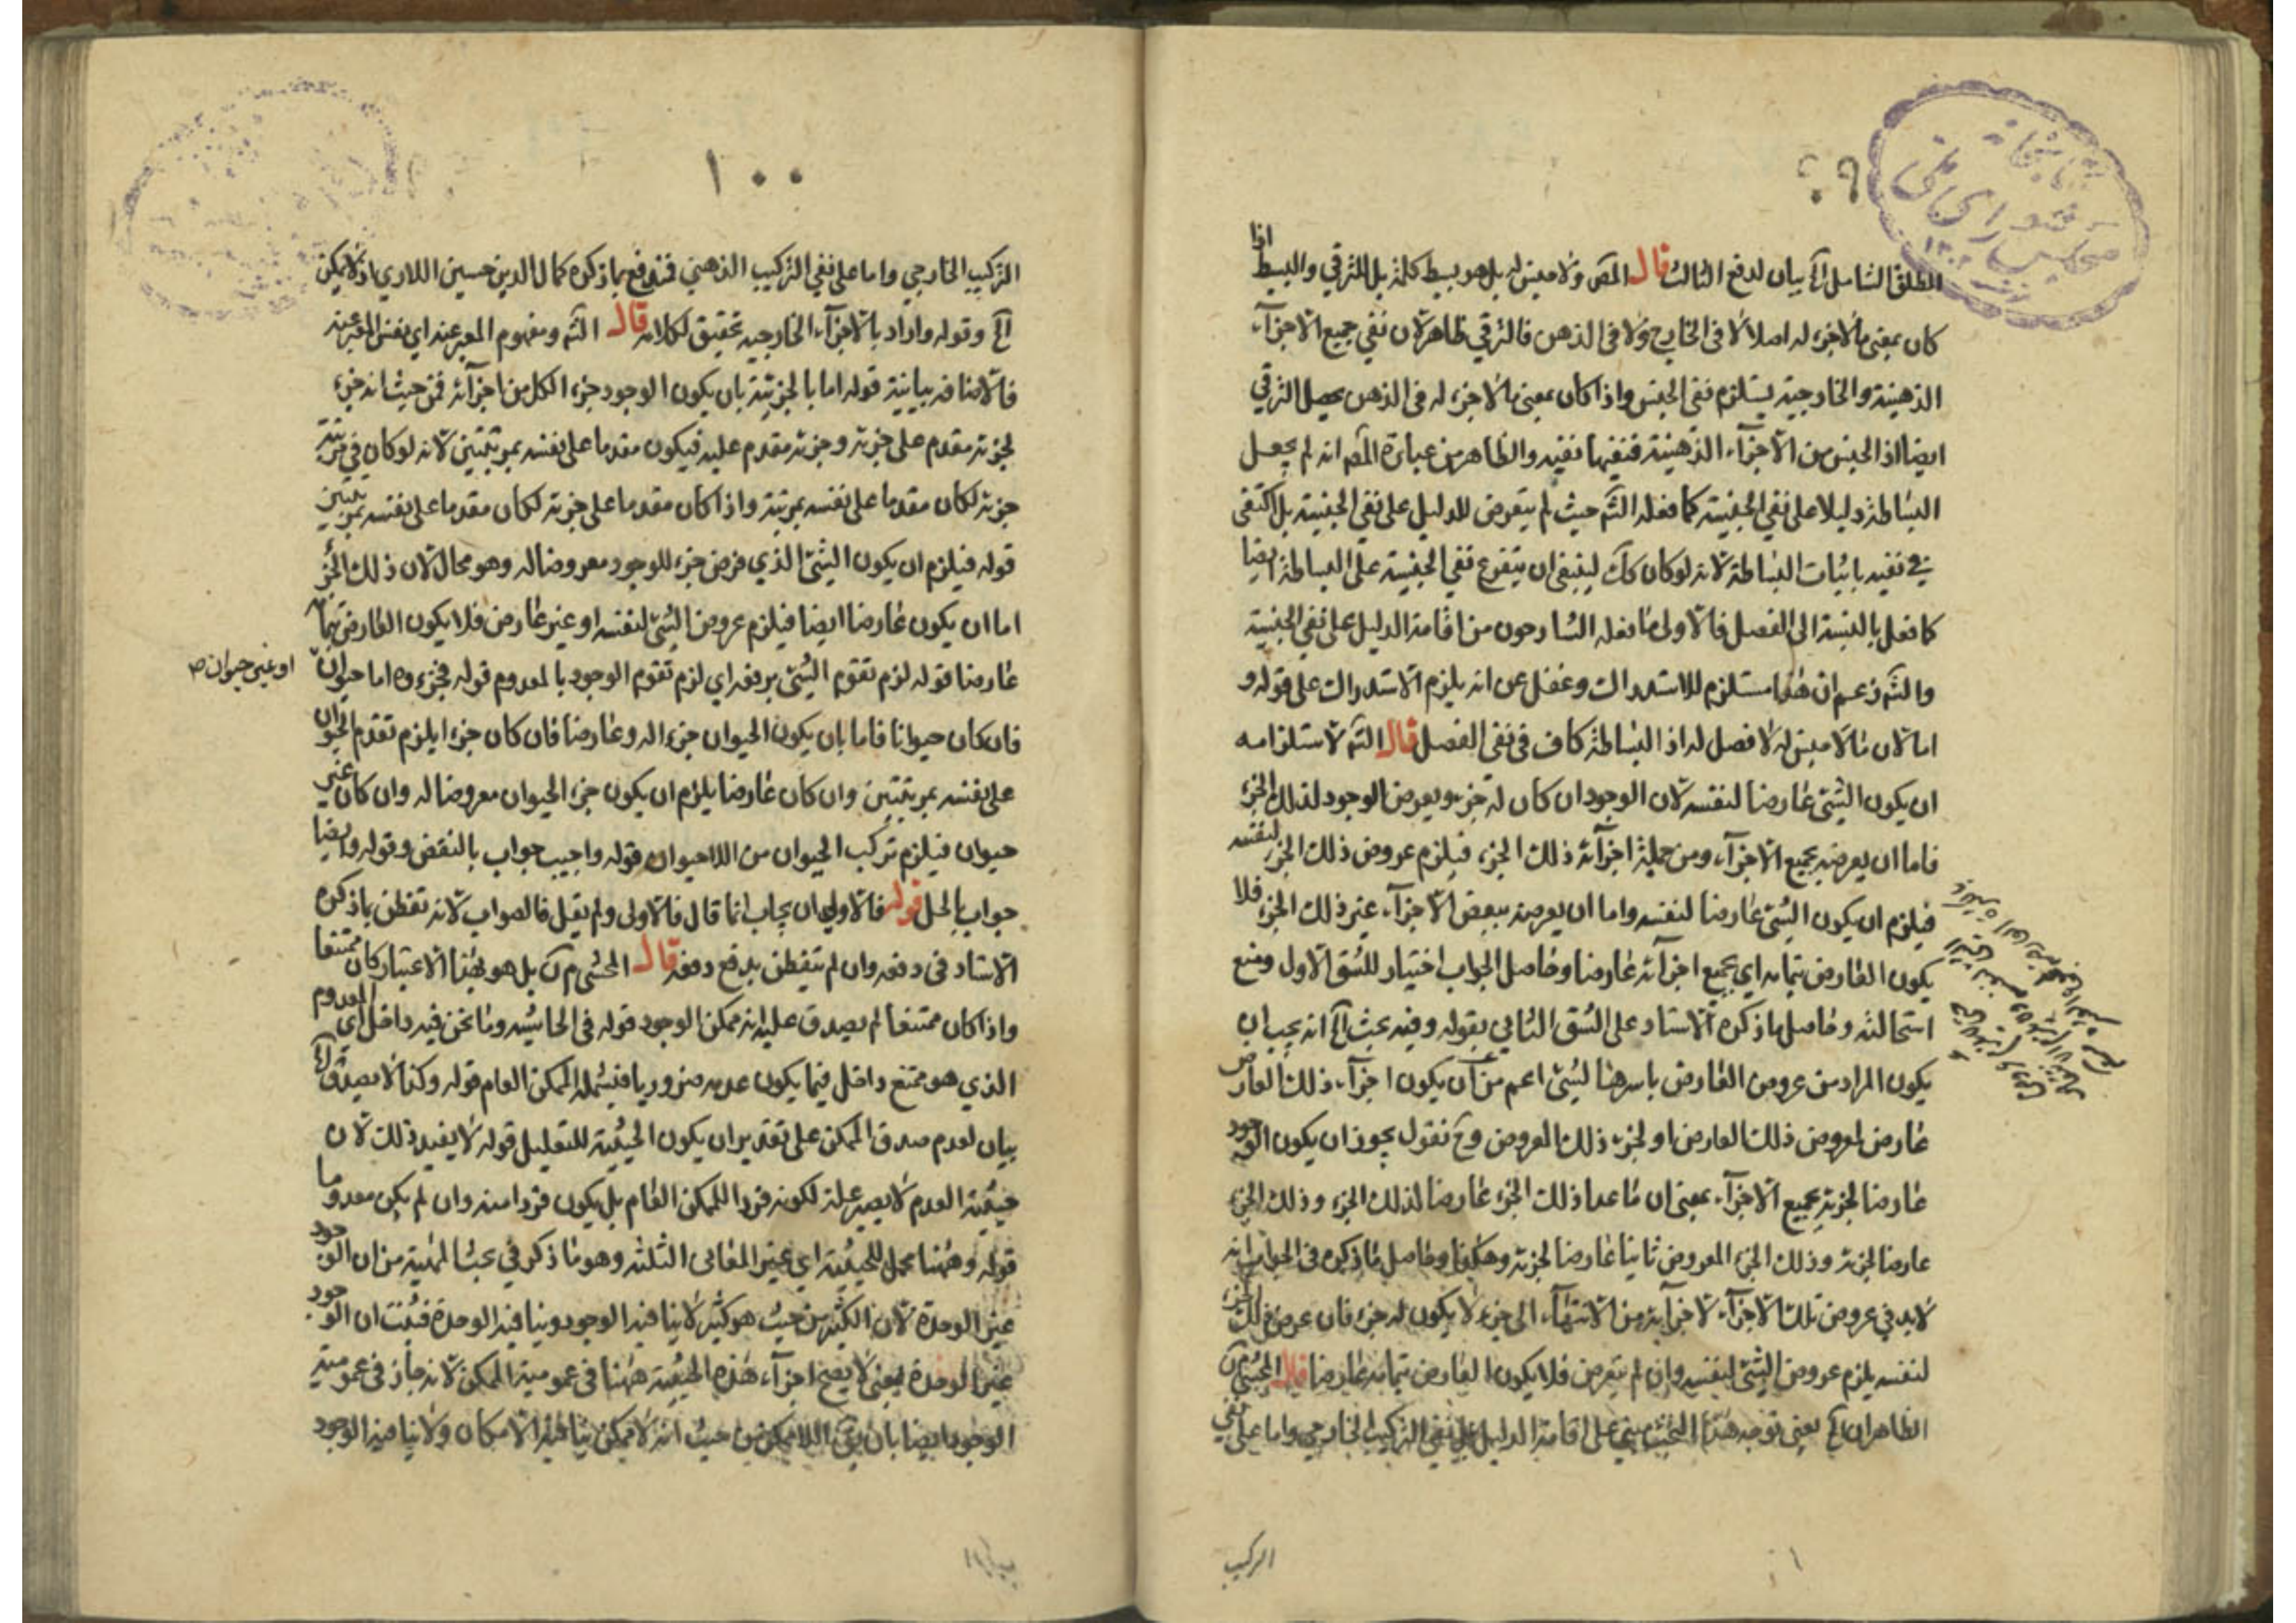 المطلق الشامل الخ بيان لدفع الثالث قال المص ولا جنس له بل هو بسيط كلمة بل للترقي والبسيط اذا
كان بمعنى ما لا جزء له اصلا لا فى الخارج ولا فى الذهن فالترقي ظاهر لان نفي جميع الاجزآء
الذهنية والخارجية يستلزم نفى الجنس واذا كان بمعنى ما لا جزء له فى الذهن يحصل الترقي
ايضا اذ الجنس من الاجزآء الذهنية فنفيها نفيه والظاهر من عبارة المص انه لم يجعل
البساطة دليلا على نفي الجنسية كما فعله الش حيث لم يتعرض للدليل على نفي الجنسية بل اكتفى
في نفيه باثبات البساطة لانه لو كان كك لينبغى ان يتفرع نفي الجنسية على البساطة ايضا
كما فعل بالنسبة الى الفصل فالاولى ما فعله الشارحون من اقامة الدليل على نفي الجنسية
والش زعم ان هذا مستلزم للاستدراك وغفل عن انه يلزم الاستدراك على قوله و
اما لان ما لا جنس له لا فصل له اذ البساطة كاف فى نفى الفصل قال الش لاستلزامه
ان يكون الشئ عارضا لنفسه لان الوجود ان كان له جزء ويعرض الوجود لذلك الجزء
فاما ان يعرضه بجميع الاجزآء ومن جملة اجزآئه ذلك الجزء فيلزم عروض ذلك الجزء لنفسه
فيلزم ان يكون الشئ عارضا لنفسه واما ان يعرضه ببعض الاجزآء غير ذلك الجزء فلا
يكون العارض بتمامه اي بجميع اجزآئه عارضا وحاصل الجواب اختيار للشق الاول ومنع
استحالته وحاصل ما ذكره الاستاد على الشق الثاني بقوله وفيه بحث الخ انه يجب ان
يكون المراد من عروض العارض باسرها لشئ اعم من ان يكون اجزآء ذلك العارض
عارض لمعروض ذلك العارض او لجزء ذلك المعروض وح نقول يجوز ان يكون الوجود
عارضا لجزئه بجميع الاجزآء بمعنى ان ما عدا ذلك الجزء عارضا لذلك الجزء وذلك الجزء
عارضا لجزئه وذلك الجزء المعروض ثانيا عارضا لجزئه وهكذا وحاصل ما ذكره فى الجواب انه
لابد في عروض تلك الاجزآء لاجزآئه من الانتهآء الى جزء لا يكون له جزء فان عرض ذلك الجزء
لنفسه يلزم عروض الشئ لنفسه وان لم يتعرض فلا يكون العارض بتمامه عارضا قال المحشي
الظاهر ان الخ يعنى توجه هذا البحث مبني على اقامة الدليل على نفي التركيب الخارجي واما على نفي
التركيب
١٠٠
التركيب الخارجي واما على نفي التركيب الذهني فتندفع بما ذكره كمال الدين حسين اللاري اذ لا يمكن
الخ وقوله واراد بالاجزآء الخارجيه تحقيق لكلامه قال الش ومفهوم المعبر عنه اي نفس المعبر عنه
فالاضافه بيانية قوله اما بالجزئية بان يكون الوجود جزء الكل من اجزآئه فمن حيث انه جزء
لجزئه مقدم على جزئه وجزئه مقدم عليه فيكون مقدما على نفسه بمرتبتين لانه لو كان في مرتبة
جزئه لكان مقدما على نفسه بمرتبة واذا كان مقدما على جزئه لكان مقدما على نفسه بمرتبتين
قوله فيلزم ان يكون الشئ الذي فرض جزء للوجود معروضا له وهو محال لان ذلك الجزء
اما ان يكون عارضا ايضا فيلزم عروض الشئ لنفسه او غير عارض فلا يكون العارض بتمامه
عارضا قوله لزم تقوم الشئ برفعه اي لزم تقوم الوجود بالمعدوم قوله فجزءه اما حيوان
او غير حيوان ص
فان كان حيوانا فاما بان يكون الحيوان جزء اله وعارضا فان كان جزء ا يلزم تقدم الحيوان
على نفسه بمرتبتين وان كان عارضا يلزم ان يكون جزء الحيوان معروضا له وان كان غير
حيوان فيلزم تركب الحيوان من اللاحيوان قوله واجيب جواب بالنقض وقوله وايضا
جواب بالحل قوله فالاولى ان يجاب انما قال فالاولى ولم يقل فالصواب لانه تفطن بما ذكره
الاستاد فى دفعه وان لم تتفطن بدفع دفعه قال المحشي بل هو بهذا الاعتبار كان ممتنعا
واذا كان ممتنعا لم يصدق عليه انه ممكن الوجود قوله فى الحاشيه وما نحن فيه داخل اي المعدوم
الذي هو ممتنع داخل فيما يكون عدمه ضروريا فيشمله الممكن العام قوله وكذا لا يصدق الخ
بيان لعدم صدق الممكن على تقدير ان يكون الحيثية للتعليل قوله لا يفيد ذلك لان
حيثية العدم لا يصير علة لكونه فردا للممكن العام بل يكون فردا منه وان لم يكن معدوما
قوله وههنا محمل للحيثية اي غير المعانى الثلثه وهو ما ذكر في بحث المهية من ان الوجود
غير الوحدة لان الكثير من حيث هو كثير لا ينافيه الوجود وينافيه الوحدة فثبت ان الوجود
غير الوحدة يعنى لا يصح اجزآء هذه الحيثية ههنا فى عمومية الممكن لانه جاز فى عمومية
الوجود ايضا بان يق اللاممكن من حيث انه لا ممكن ينافيه الامكان ولا ينافيه الوجود